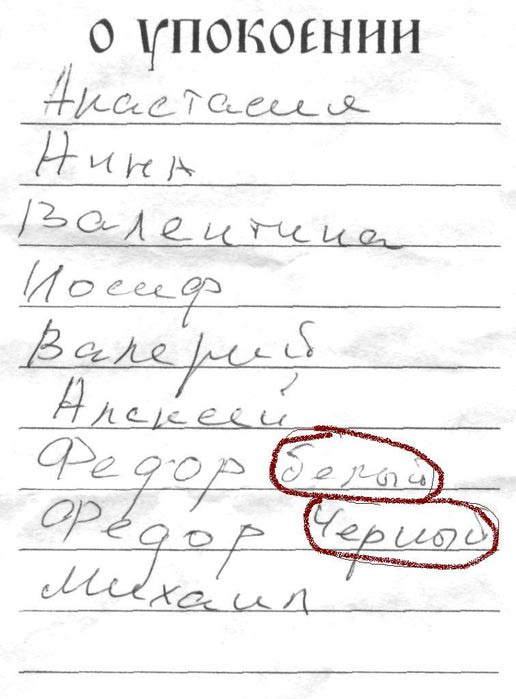 О УПОКОЕНИИ
Анастасия
Нина
Валентина
Иосиф
Валерий
Алексей
Федор белый
Федор Черный
Михаил